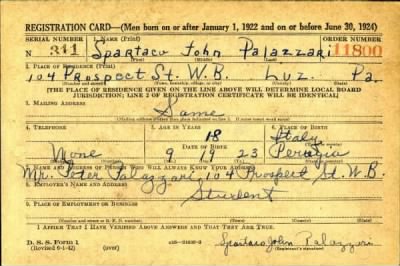 REGISTRATION CARD—(Men born on or after January 1, 1922 and on or before June 30, 1924)
SERIAL NUMBER 1. NAME (Print) ORDER NUMBER
N 311 Spartaco John Palazzari 11800
2. PLACE OF RESIDENCE (Print)
104 Prospect St. W.B. Luz. Pa.
[THE PLACE OF RESIDENCE GIVEN ON THE LINE ABOVE WILL DETERMINE LOCAL BOARD
JURISDICTION; LINE 2 OF REGISTRATION CERTIFICATE WILL BE IDENTICAL]
3. MAILING ADDRESS
Same
4. TELEPHONE 5. AGE IN YEARS 6. PLACE OF BIRTH
18 Italy
None 9 19 23 Perugia
7. NAME AND ADDRESS OF PERSON WHO WILL ALWAYS KNOW YOUR ADDRESS
Mr. Peter Palazzari, 104 Prospect St. W.B.
8. EMPLOYER'S NAME AND ADDRESS
Student
9. PLACE OF EMPLOYMENT OR BUSINESS
I AFFIRM THAT I HAVE VERIFIED ABOVE ANSWERS AND THAT THEY ARE TRUE.
D. S. S. Form 1
(Revised 6-1-42) (over) Spartaco John Palazzari
(Registrant's signature)